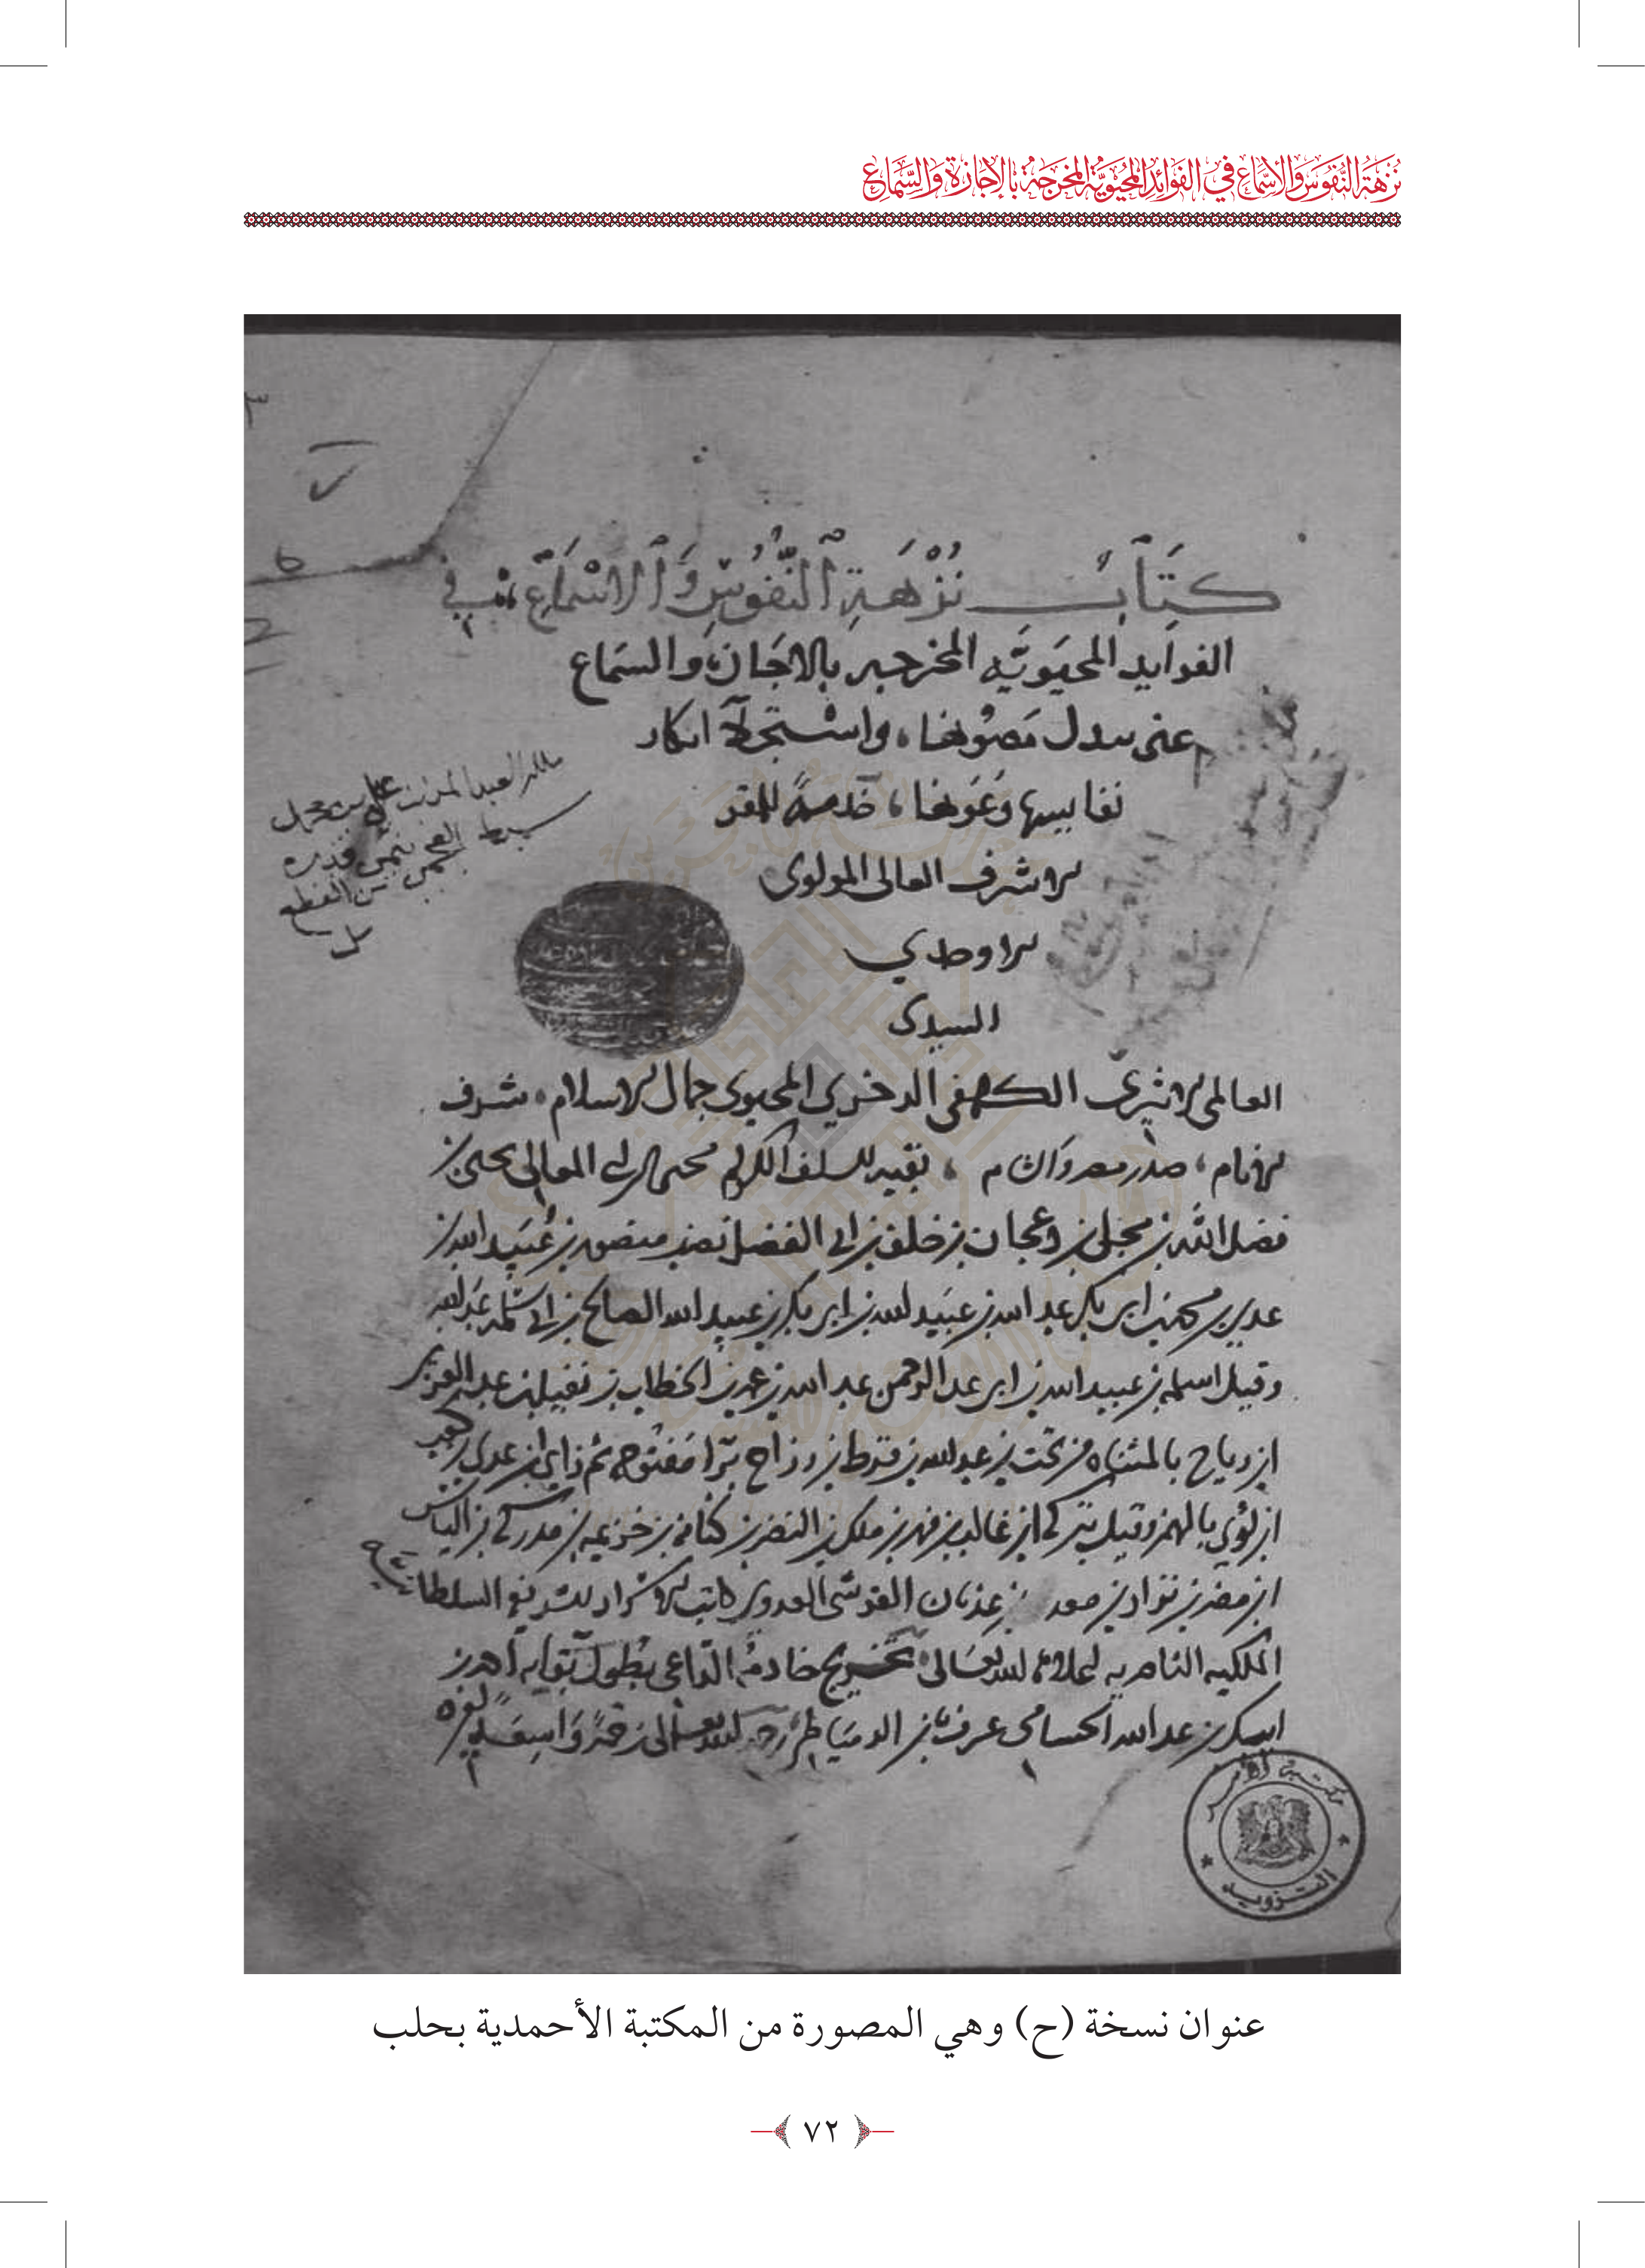 نُزْهَةُ النُّفُوسِ وَالأَسْمَاعِ فِي الفَوَائِدِ المُحْيَوِيَّةِ المُخَرَّجَةِ بِالإِجَازَةِ وَالسَّمَاعِ
كِتَابُ نُزْهَةِ النُّفُوسِ وَالاسْمَاعِ في
الفوايد المحيَويَّه المخرجه بالاجَازه والسَماع
عنى ببدل مَصُونها، واستجلا ابكار
نفايسها وعَونها، خدمةً للمقر
الاشرف العالى المولوى
الاوحدي
السيدى
العالمى الاثيرى الكهفى الدخري المحيوى جمال الاسلام، شرف
الانام، صدر مصر والشام، بقيه السلف الكرام محيى الدين ابى المعالى يحيى بن
فضل الله بن مجلى بن دعجان بن خلف بن ابى الفضل نصر بن منصور بن عُبَيد الله بن
عدي بن محمد بن ابى بكر عبد الله بن عبيد الله بن ابى بكر بن عبيد الله الصالح بن ابى سلمه عبد الله
وقيل اسلمه بن عبيد الله بن ابى عبد الرحمن عبد الله بن عمر بن الخطاب بن نفيل بن عبد العزى
ابن رياح بالمثناه من تحت بن عبد الله بن قرط بن رزاح برا مفتوحه ثم زاي ابن عدي بن كعب
ابن لؤي بالهمز وقيل بتركه ابن غالب بن فهر بن ملك بن النضر بن كنانه بن خزيمه بن مدركه بن الياس
ابن مضر بن نزار بن معد بن عدنان القرشى العدوى كاتب الاسرار الشريفه السلطانيه
الملكيه الناصريه اعلاه الله تعالى تخريج خادمه الداعى بطول بقايه احمد بن
ايبك بن عبد الله الحسامى عرف بابن الدمياطى رحمه الله تعالى رحمةً واسعة
مكتبة الأسد
التزويد
عنوان نسخة (ح) وهي المصورة من المكتبة الأحمدية بحلب
٧٢